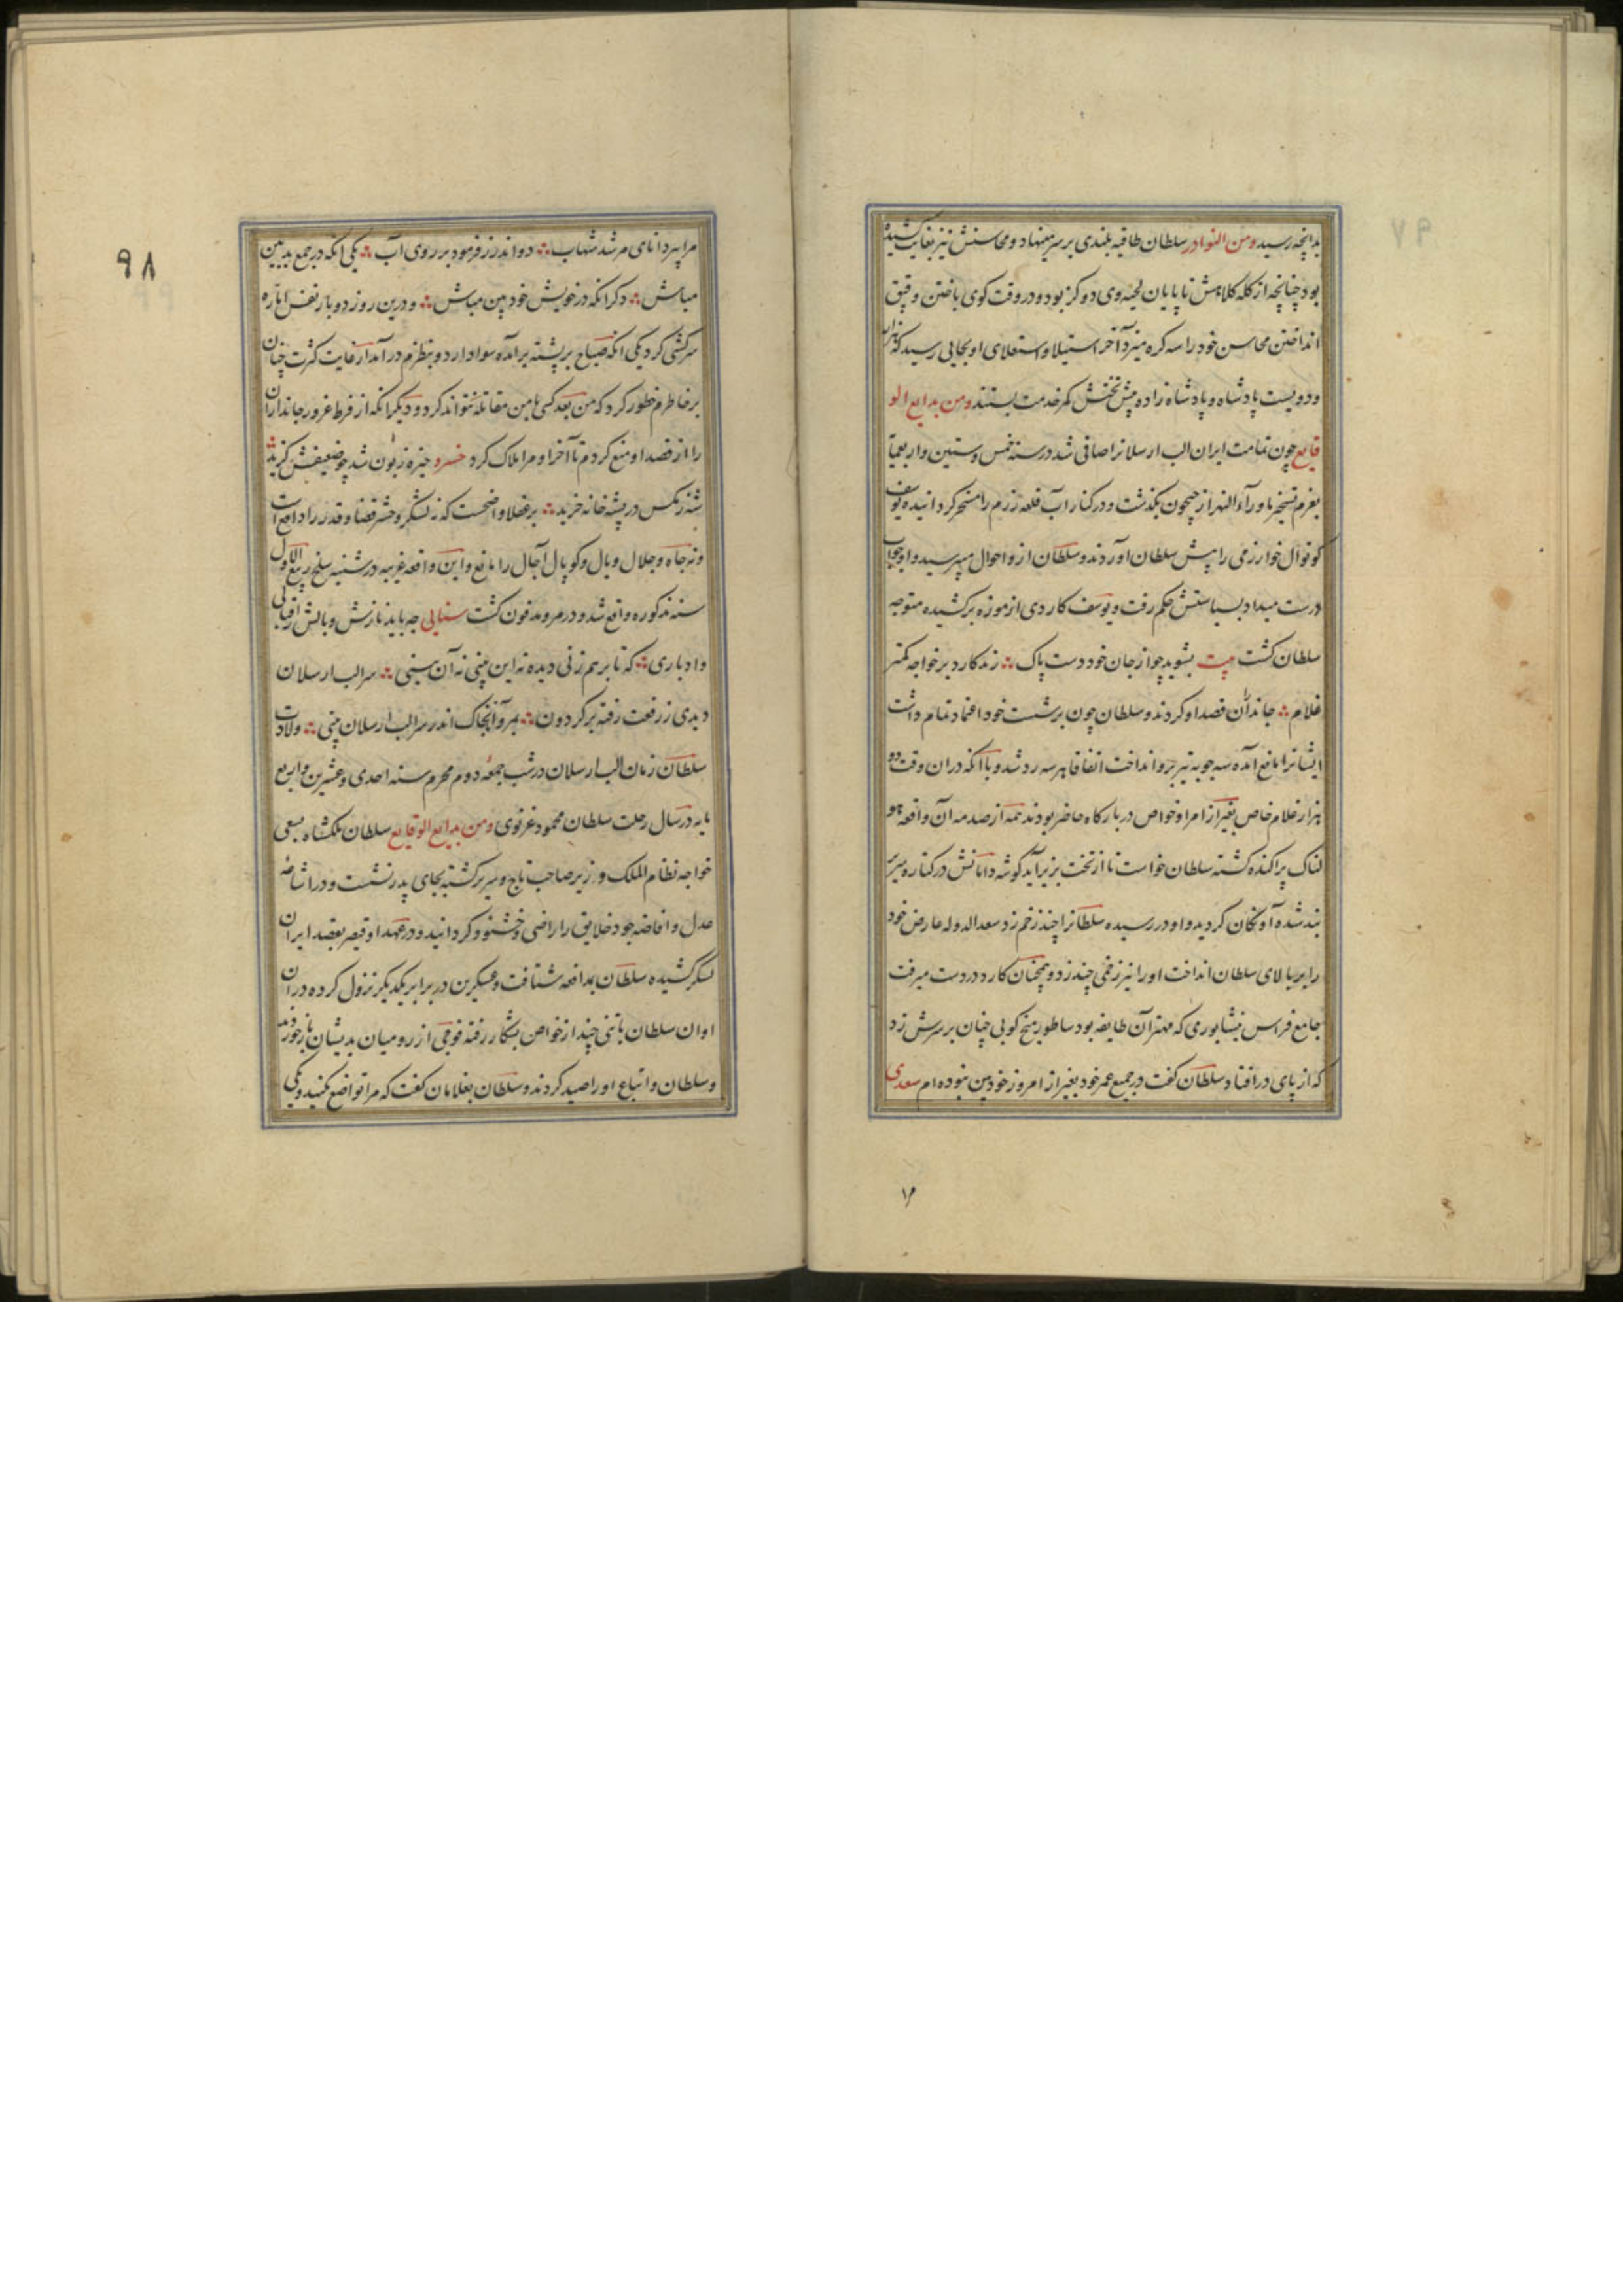 بدانچه رسید ومن النوادر سلطان طاقیه بلندی بر سر مینهاد و محاسنش نیز بغایت کشیده
بود چنانچه از کله کلاهش تا پایان لحیه وی دو کز بود و در وقت کوی باختن و قبق
انداختن محاسن خود را سه کره میزد آخر استیلا و استعلای او بجایی رسید که هزار
و دویست پادشاه و پادشاه زاده پیش تختش کمر خدمت بستند ومن بدایع الو
قایع چون تمامت ایران الب ارسلانرا صافی شد در سنه خمس و ستین و اربعمایه
بعزم تسخیر ماوراء النهر از جیحون بکذشت و در کنار آب قلعه زرم را مسخر کردانیده یوسف
کوتوال خوارزمی را پیش سلطان آوردند و سلطان ازو احوال میپرسید و او جواب
درست میداد بسیاستش حکم رفت و یوسف کاردی از موزه برکشیده متوجه
سلطان کشت بیت بشوید چو از جان خود دست پاک زند کارد بر خواجه کمتر
غلام جانداران قصد او کردند و سلطان چون بر شست خود اعتماد تمام داشت
ایشانرا مانع آمده سه چوبه تیر برو انداخت اتفاقا هر سه رد شد و با آنکه دران وقت دو
هزار غلام خاص بغیر از امرا و خواص در بارکاه حاضر بودند همه از صدمه آن واقعه هو
لناک پراکنده کشته سلطان خواست تا از تخت بزیر آید کوشه دامانش در کناره سریر
بند شده آونکان کردید و او در رسیده سلطانرا چند زخم زد سعد الدوله عارض خود
را بر بالای سلطان انداخت او را نیز زخمی چند زد و همچنان کارد در دست میرفت
جامع فراش نیشابوری که مهتر آن طایفه بود ساطور میخ کوبی چنان بر سرش زد
که از پای در افتاد سلطان کفت در جمیع عمر خود بغیر از امروز خود بین نبوده ام سعدی
۱۶
۹۸
مرا پیر دانای مرشد شهاب دو اندرز فرمود بر روی آب یکی آنکه در جمع بدبین
مباش دکر آنکه در خویش خود بین مباش و درین روز دو بار نفس اماره
سرکشی کرد یکی آنکه صباح بر پشته برآمده سواد اردو بنظرم در آمد از غایت کثرت چنان
بر خاطرم خطور کرد که من بعد کسی با من مقاتله نتواند کرد و دیکر آنکه از فرط غرور جانداران
را از قصد او منع کردم تا آخر او مرا هلاک کرد خسرو خیره زبون شد چو ضعیفش کزید
شه ز مکس در پشه خانه خزید بر عقلا واضحست که نه لشکر و حشر قضا و قدر را دافع است
و نه جاه و جلال و بال و کوپال آجال را مانع و این واقعه غریبه در شنبه سلخ ربیع الاول
سنه مذکوره واقع شد و در مرو مدفون کشت سنایی چه باید نازش و بالش ز اقبالی
و ادباری که تا بر هم زنی دیده نه این بینی نه آن بینی سر الب ارسلان
دیدی ز رفعت رفته بر کردون بمرو آ تا بخاک اندر سر الب ارسلان بینی ولادت
سلطان زمان الب ارسلان در شب جمعه دوم محرم سنه احدی و عشرین و اربع
مایه در سال رحلت سلطان محمود غزنوی ومن بدایع الوقایع سلطان ملکشاه بسعی
خواجه نظام الملک وزیر صاحب تاج و سریر کشته بجای پدر نشست و در اشاعه
عدل و افاضه جود خلایق را راضی و خشنود کردانید و در عهد او قیصر بقصد ایران
لشکر کشیده سلطان بمدافعه شتافت و عسکرین در برابر یکدیکر نزول کرده دران
اوان سلطان با تنی چند از خواص بشکار رفته فوجی از رومیان بدیشان باز خوردند
و سلطان و اتباع او را صید کردند و سلطان بغلامان کفت که مرا تواضع مکنید و یکی